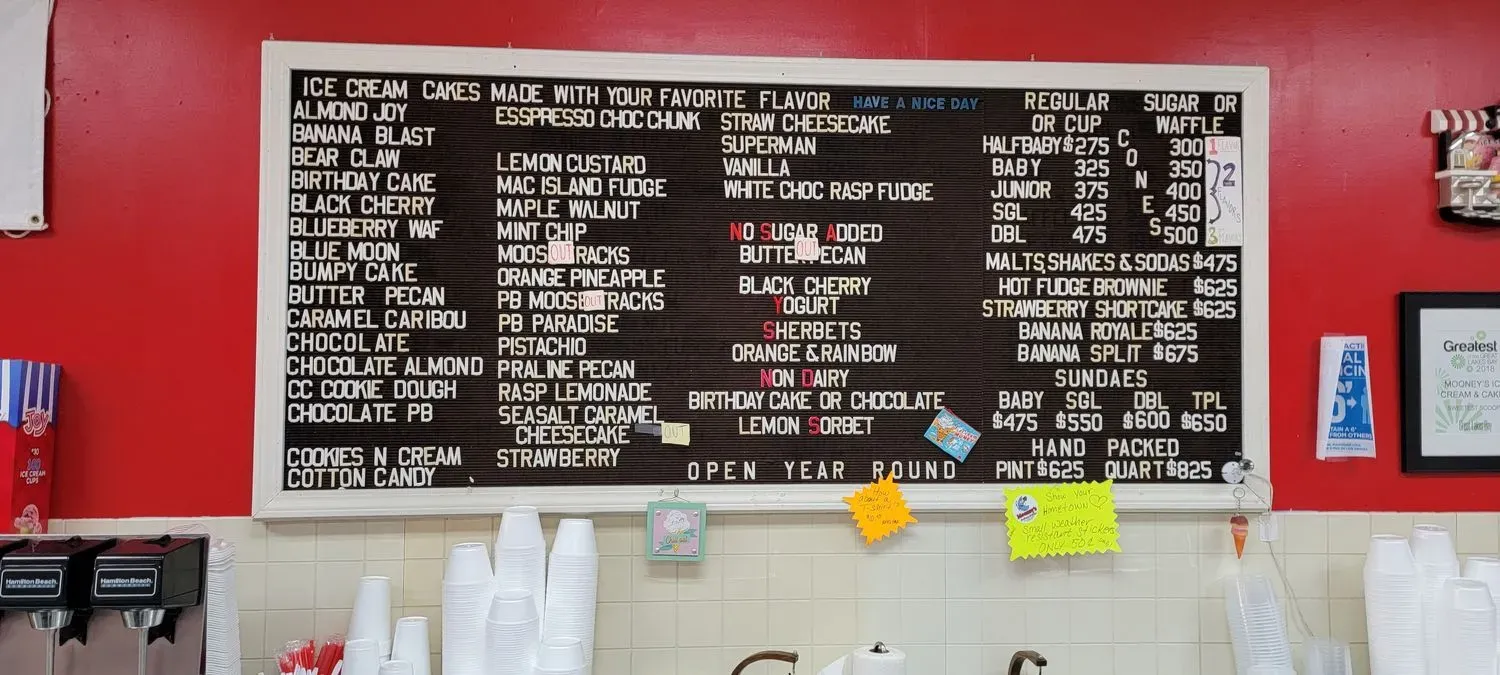 ICE CREAM CAKES MADE WITH YOUR FAVORITE FLAVOR HAVE A NICE DAY
ALMOND JOY
BANANA BLAST
BEAR CLAW
BIRTHDAY CAKE
BLACK CHERRY
BLUEBERRY WAF
BLUE MOON
BUMPY CAKE
BUTTER PECAN
CARAMEL CARIBOU
CHOCOLATE
CHOCOLATE ALMOND
CC COOKIE DOUGH
CHOCOLATE PB
COOKIES N CREAM
COTTON CANDY
ESSPRESSO CHOC CHUNK
LEMON CUSTARD
MAC ISLAND FUDGE
MAPLE WALNUT
MINT CHIP
MOOS OUT RACKS
ORANGE PINEAPPLE
PB MOOSE OUT RACKS
PB PARADISE
PISTACHIO
PRALINE PECAN
RASP LEMONADE
SEASALT CARAMEL
CHEESECAKE OUT
STRAWBERRY
STRAW CHEESECAKE
SUPERMAN
VANILLA
WHITE CHOC RASP FUDGE
NO SUGAR ADDED
BUTTE OUT PECAN
BLACK CHERRY
YOGURT
SHERBETS
ORANGE & RAINBOW
NON DAIRY
BIRTHDAY CAKE OR CHOCOLATE
LEMON SORBET
OPEN YEAR ROUND
REGULAR SUGAR OR
OR CUP WAFFLE
CONES
HALFBABY $275 300
BABY 325 350
JUNIOR 375 400
SGL 425 450
DBL 475 500
1 FLAVOR
2
FLAVORS
3
MALTS, SHAKES & SODAS $475
HOT FUDGE BROWNIE $625
STRAWBERRY SHORTCAKE $625
BANANA ROYALE $625
BANANA SPLIT $675
SUNDAES
BABY SGL DBL TPL
$475 $550 $600 $650
HAND PACKED
PINT $625 QUART $825
How
about a
T-shirt?
Show your
Hometown
small weather
resistant stickers
ONLY 50¢
Hamilton Beach
Hamilton Beach
JOY
100
ICE CREAM
CUPS
Greatest
@ 2018
MOONEY'S IC
CREAM & CAKE
SWEETEST SCOOP
Great Lakes Bay